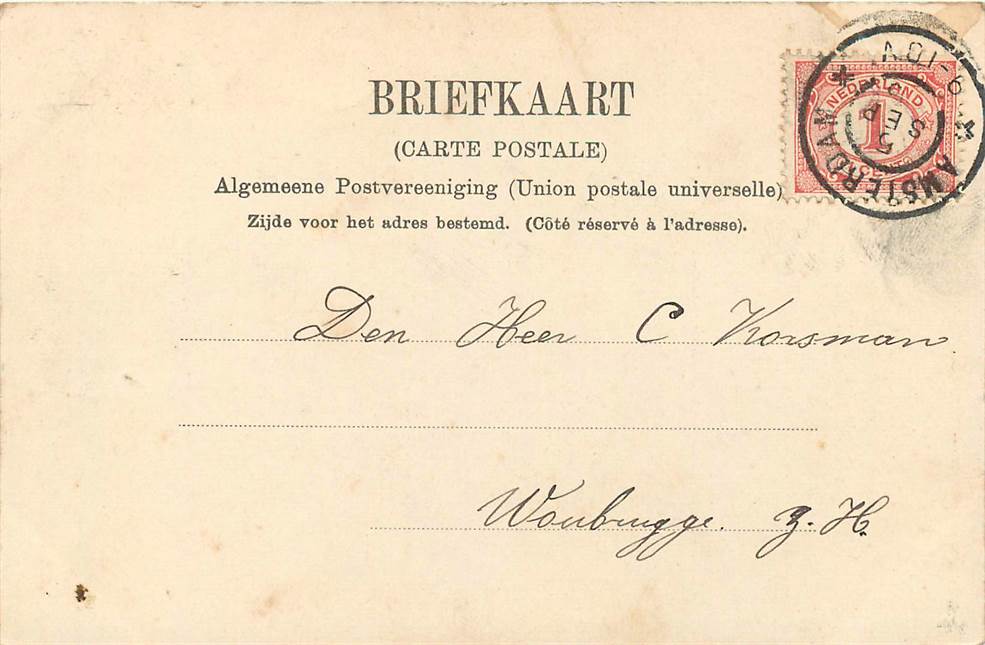 BRIEFKAART
(CARTE POSTALE)
Algemeene Postvereeniging (Union postale universelle)
Zijde voor het adres bestemd. (Côté réservé à l'adresse).
NEDERLAND
1
CENT
AMSTERDAM
9-10V
5
SEP
Den Heer C Korsman
Woubrugge. Z.H.